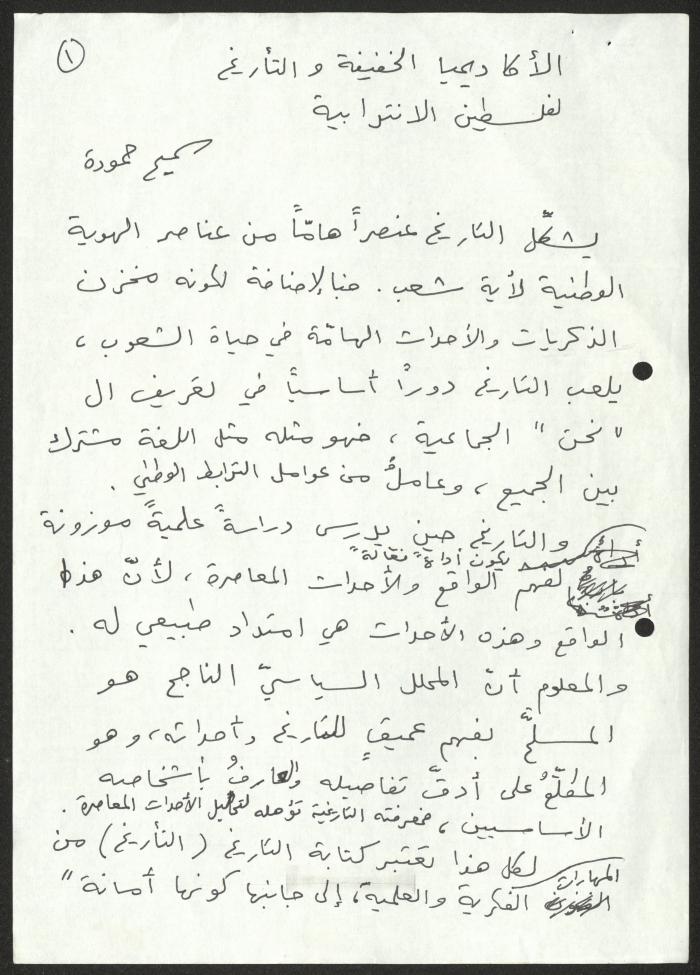 ١
الأكاديميا الخفيفة والتأريخ
لفلسطين الانتدابية
سميح حمودة
يشكّل التاريخ عنصراً هامّاً من عناصر الهوية
الوطنية لأية شعب. فبالإضافة لكونه مخزن
الذكريات والأحداث الهامّة في حياة الشعوب،
يلعب التاريخ دوراً أساسياً في تعريف ال
"نحن" الجماعية، فهو مثله مثل اللغة مشترك
بين الجميع، وعاملٌ من عوامل الترابط الوطني.
والتاريخ حين يدرس دراسةً علميةً موزونة
يكون أداة "فعّالة"
لفهم الواقع والأحداث المعاصرة، لأنّ هذا
الواقع وهذه الأحداث هي امتداد طبيعي له.
والمعلوم أنّ المحلل السياسيّ الناجح هو
المسلّح بفهم عميقٍ للتاريخ وأحداثه، وهو
المطّلعُ على أدقّ تفاصيله والعارفُ بأشخاصه
الأساسيين، فمعرفته التاريخية تؤهله لتحليل الأحداث المعاصرة.
لكل هذا تعتبر كتابة التاريخ (التأريخ) من
المهارات
الفكرية والعلمية، إلى جانبها كونها أمانة"